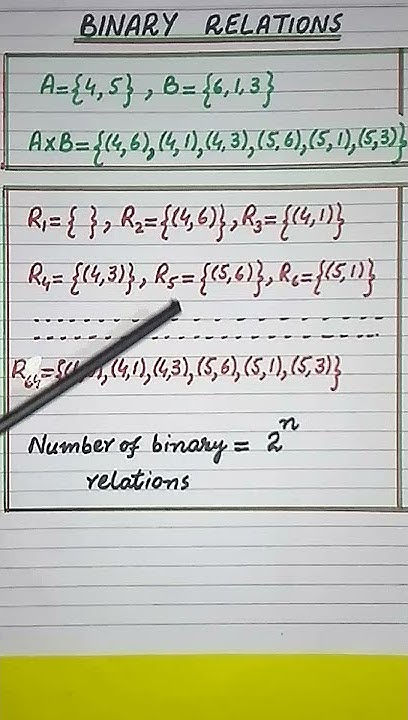 BINARY RELATIONS
A={4,5} , B={6,1,3}
A×B={(4,6),(4,1),(4,3),(5,6),(5,1),(5,3)}
R₁={ }, R₂={(4,6)}, R₃={(4,1)}
R₄={(4,3)}, R₅={(5,6)}, R₆={(5,1)}
R₆₄={(4, ),(4,1),(4,3),(5,6),(5,1),(5,3)}
Number of binary = 2ⁿ
relations